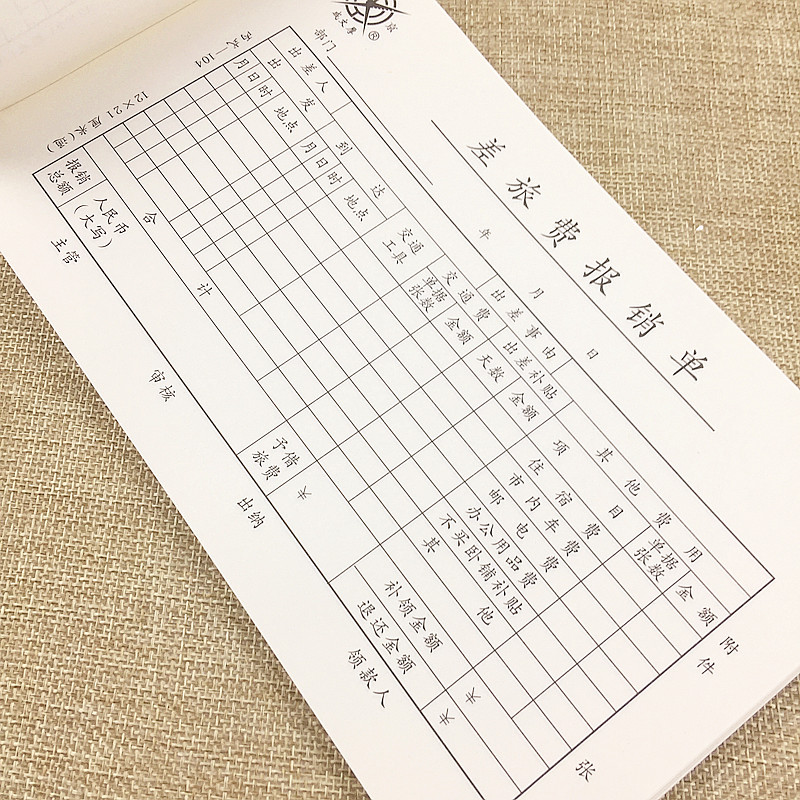 京
成文厚®
差旅费报销单
部门 年 月 日
出差人 出差事由
出发 到达 交通工具 交通费 出差补贴 其他费用
月 日 时 地点 月 日 时 地点 单据张数 金额 天数 金额 项目 单据张数 金额
住宿费
市内车费
邮电费
办公用品费
不买卧铺补贴
其他
合计
报销总额 人民币(大写) 予借旅费 ¥ 补领金额 ¥
退还金额 ¥
主管 审核 出纳 领款人
附件 张
12×21厘米